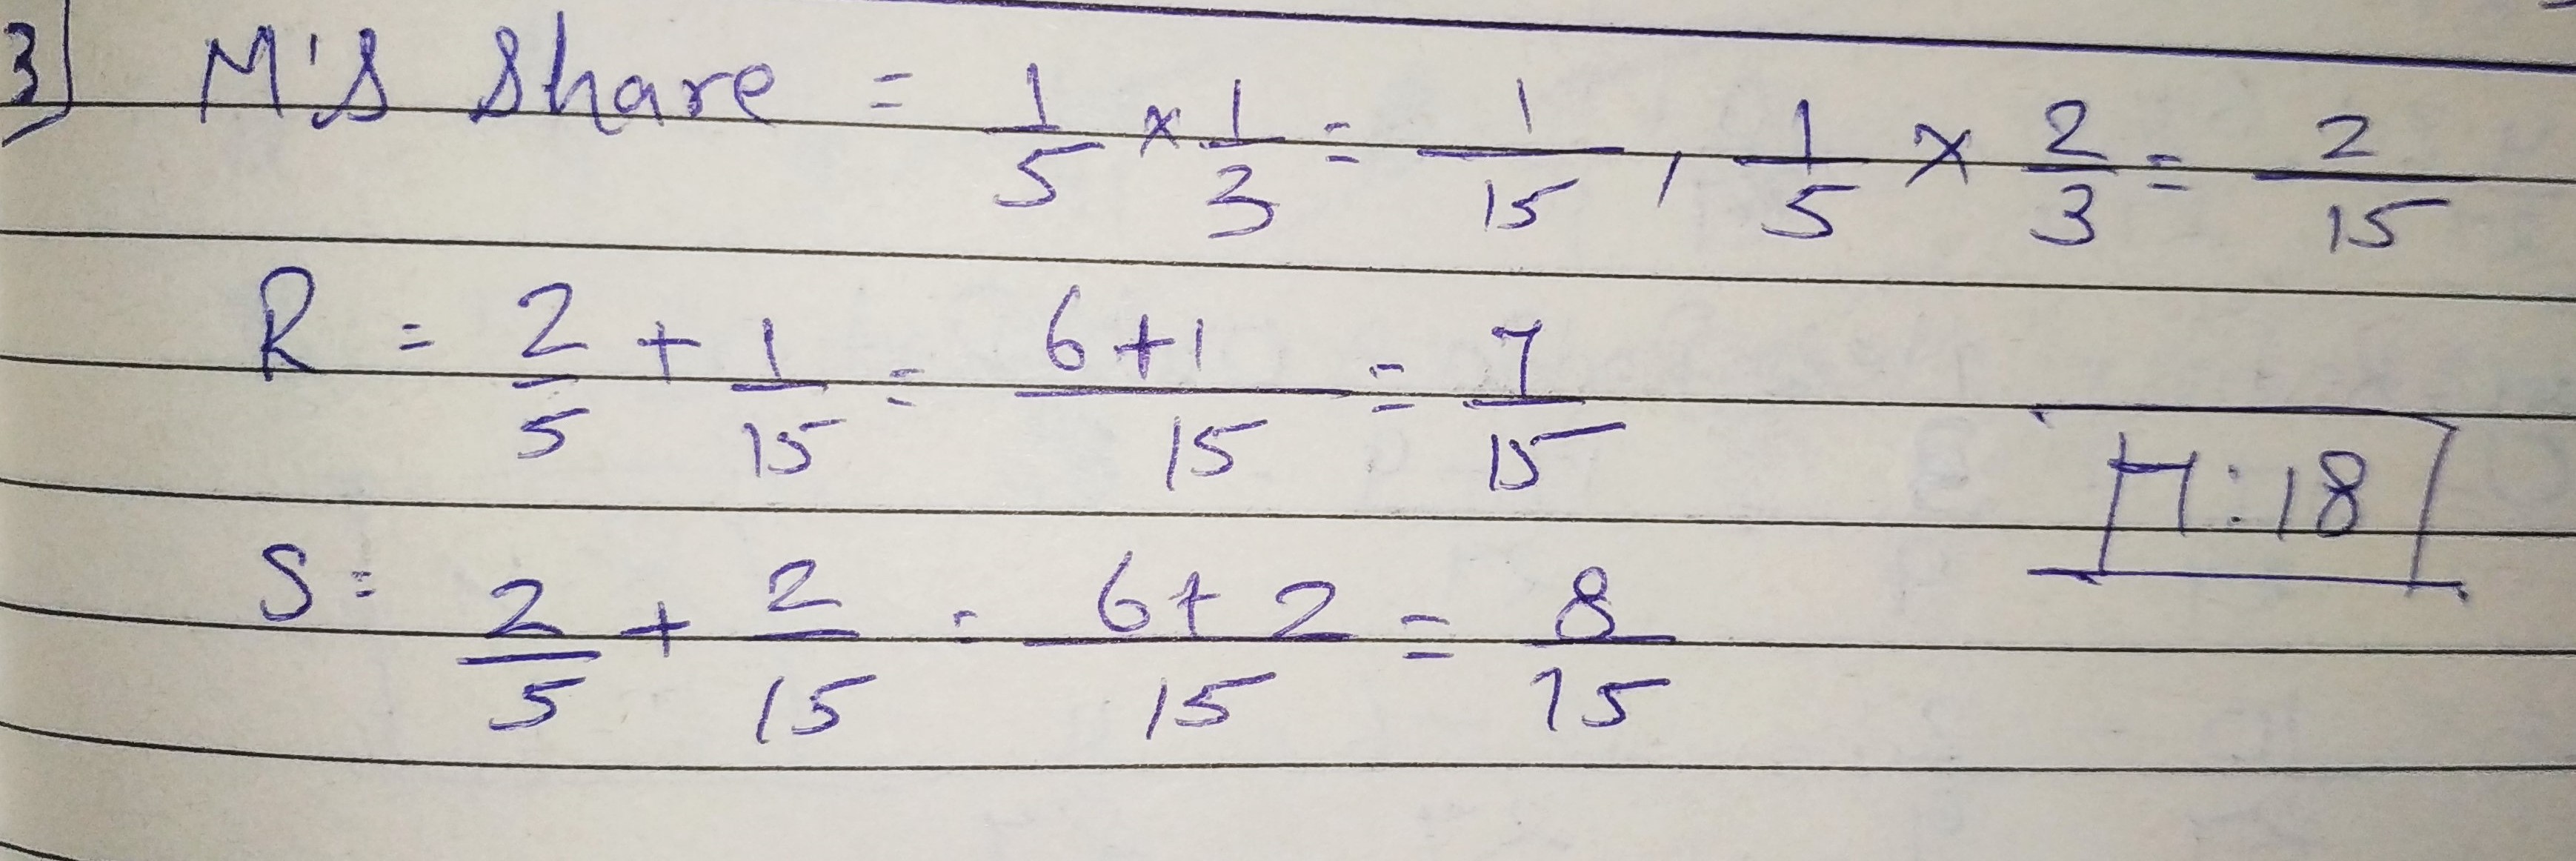 3) M's Share = 1/5 × 1/3 = 1/15 , 1/5 × 2/3 = 2/15
R = 2/5 + 1/15 = 6+1/15 = 7/15
H:18
S = 2/5 + 2/15 = 6+2/15 = 8/15